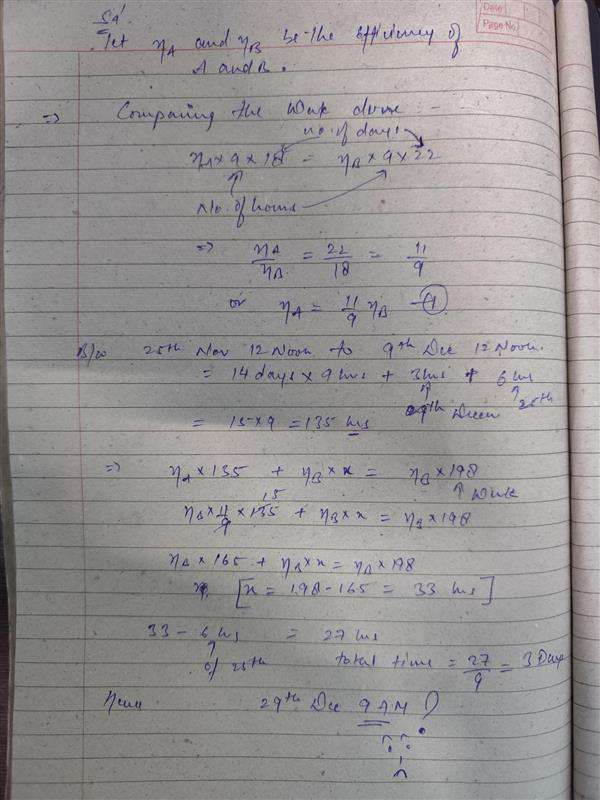 Date
Page No.
Let ηA and ηB be the efficiency of
A and B.
⇒ Comparing the work done
no. of days
ηA × 9 × 18 = ηB × 9 × 22
No. of hours
⇒ ηA/ηB = 22/18 = 11/9
or ηA = 11/9 ηB – 1
B/w 25th Nov 12 Noon to 9th Dec 12 Noon.
= 14 days × 9 hrs + 3 hrs + 6 hrs
= 15×9 = 135 hrs 9th Decem 25th
⇒ ηA × 135 + ηB × x = ηB × 198
Work
ηB × 11/9 × 135 + ηB × x = ηB × 198
15
ηB × 165 + ηB × x = ηB × 198
[x = 198 - 165 = 33 hrs]
33 - 6 hrs = 27 hrs
of 25th total time = 27/9 = 3 Days
Hence 29th Dec 9 AM